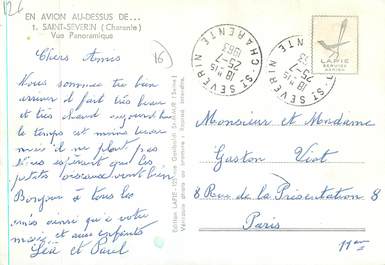 126
EN AVION AU-DESSUS DE...
1. SAINT-SEVERIN (Charente)
Vue Panoramique
16
Chers Amis
Nous sommes très bien
arriver il fait très beau
et très chaud aujourd'hui
le temps est moins beau
mais il ne pleut pas
espérant que les
petits oiseaux vont bien
Bonjour à tous les
amis ainsi qu'a votre
mère et aux enfants
Léa et Paul
Edition LAPIE
ST-MAUR (Seine)
Véritable photo au bromure
ST SEVERIN CHARENTE
18H15
25-7
1963
ST SEVERIN CHARENTE
18H15
25-7
LAPIE
SERVICE
AERIEN
Monsieur et Madame
Gaston Viot
8 Rue de la Présentation 8
Paris
11em